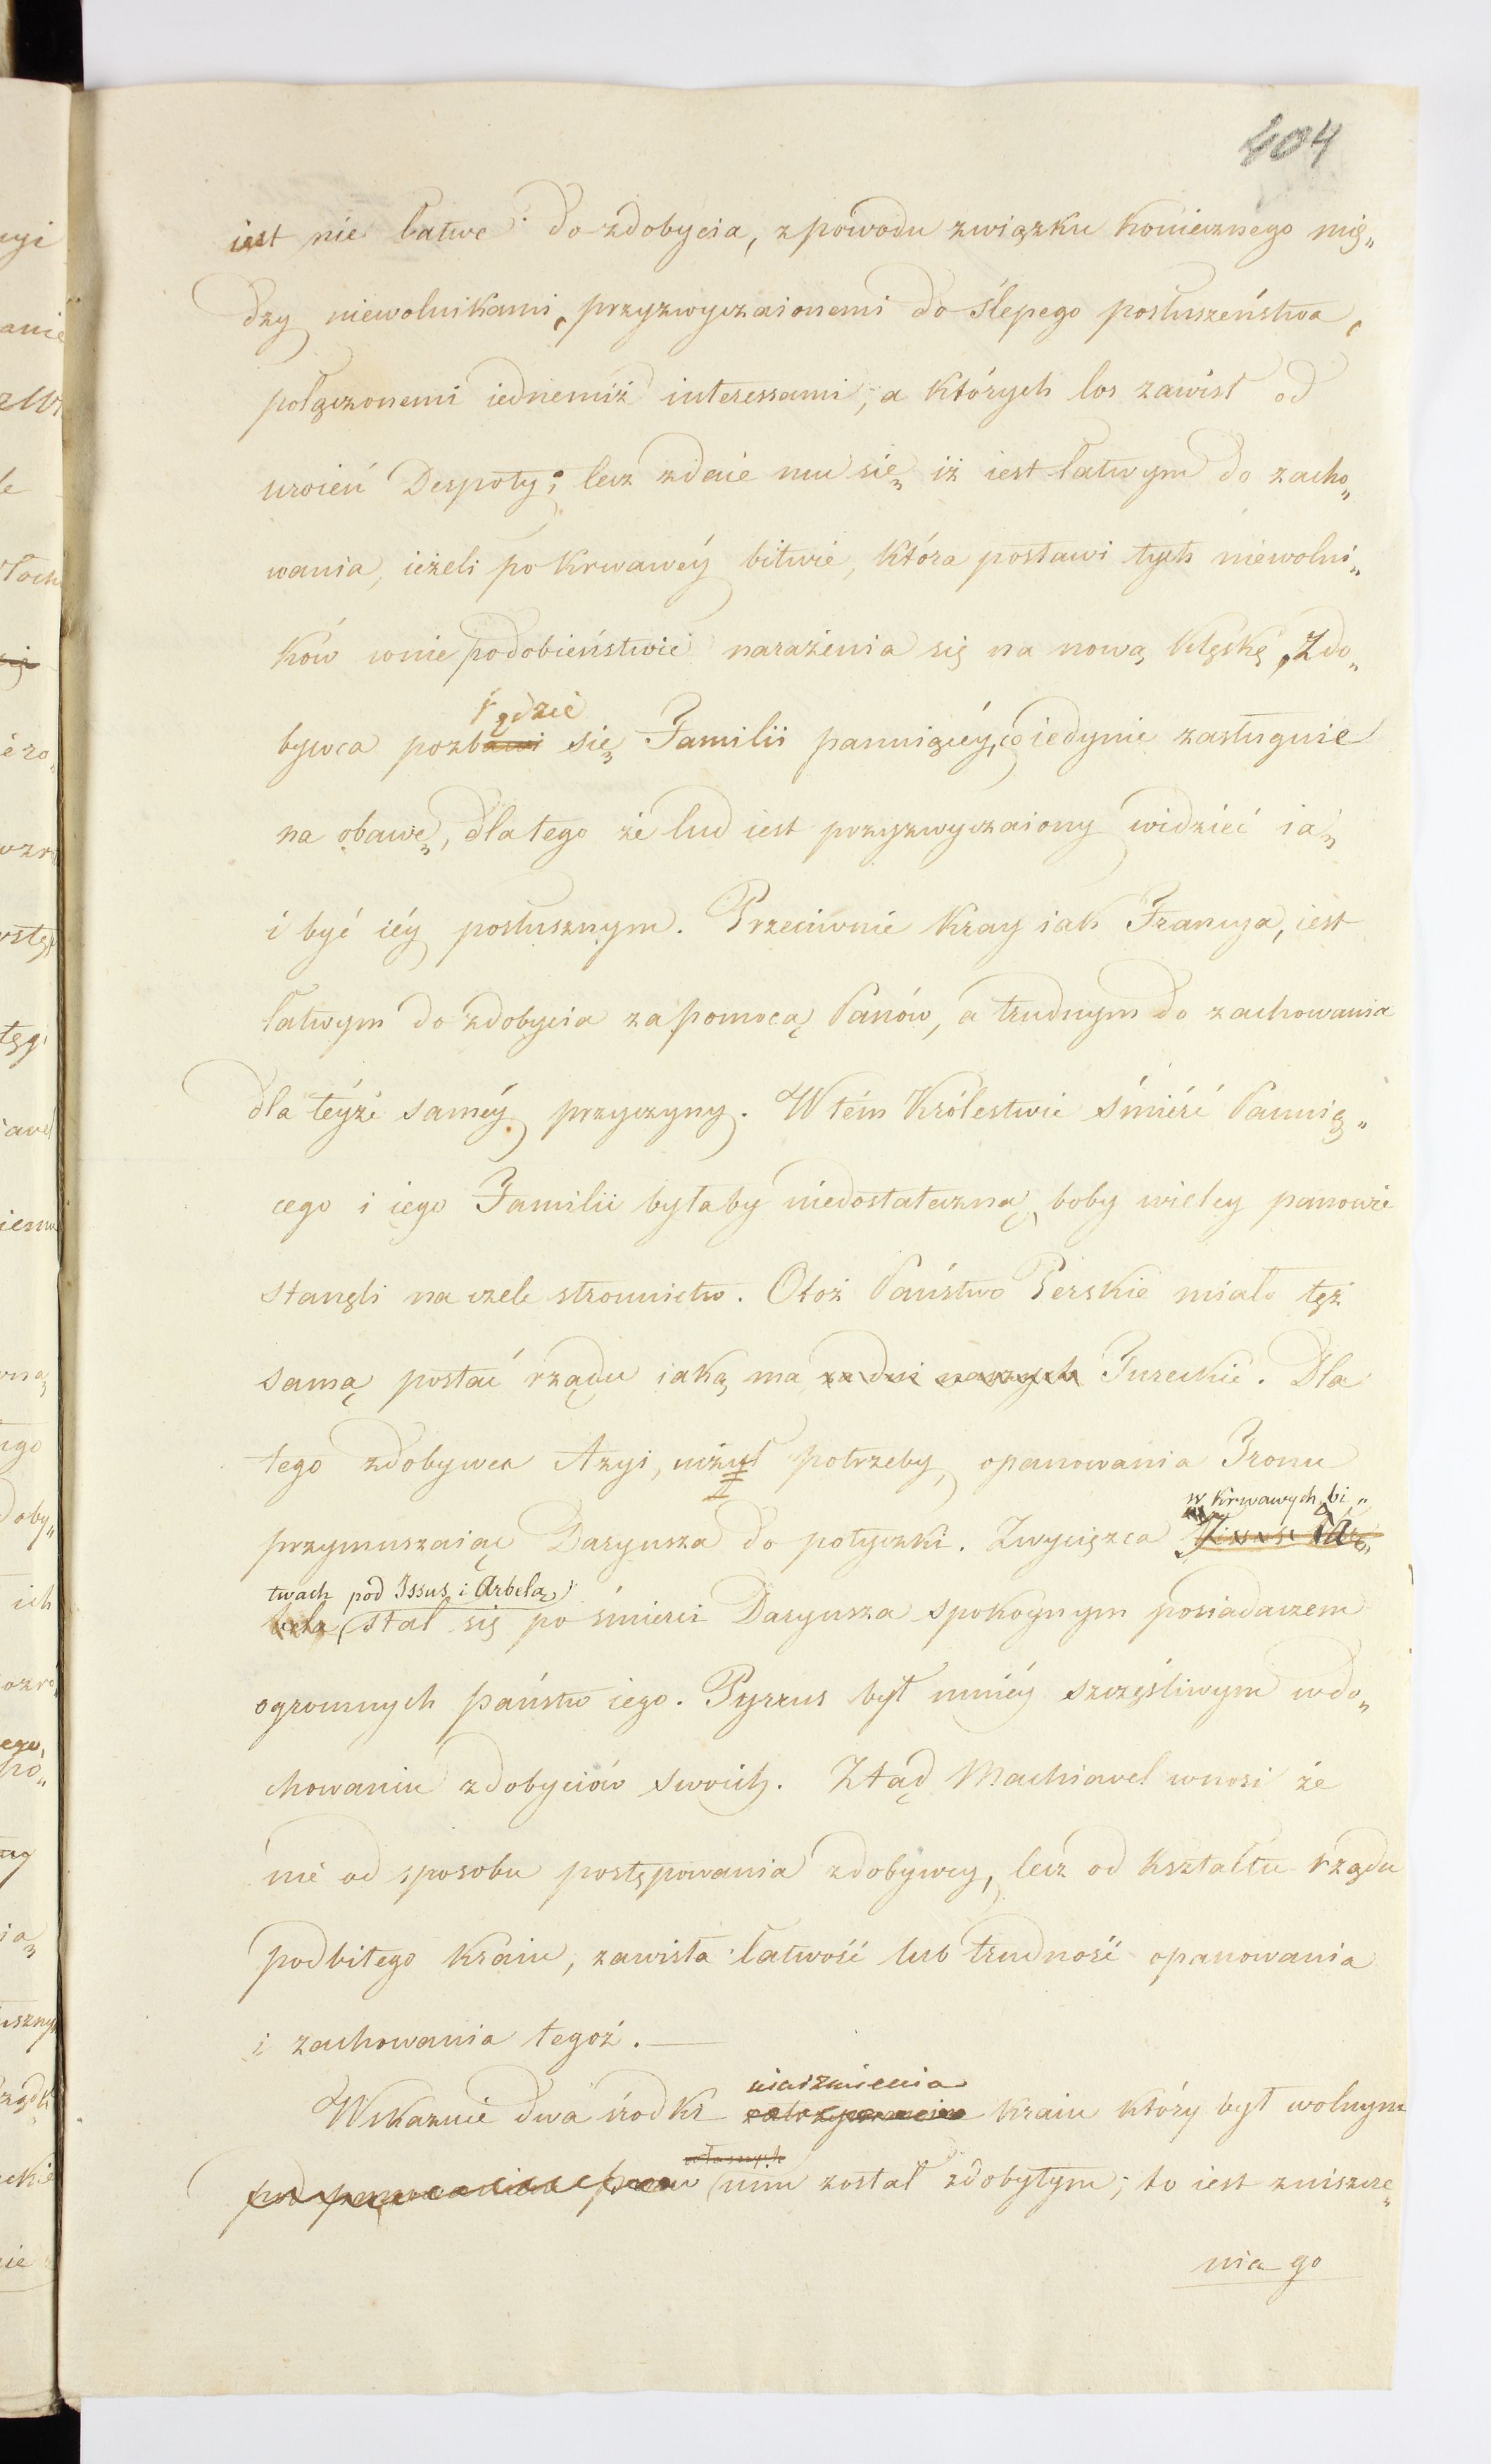 404
iest nie łatwe do zdobycia, z powodu związku koniecznego mię„
dzy niewolnikami, przyzwyczaionemi do ślepego posłuszeństwa,
połączonemi iednemiż interessami, a których los zawisł od
uroień Despoty; lecz zdaie mu się iż iest łatwym do zacho„
wania, ieżeli po krwawéy bitwie, która postawi tych niewolni„
ków w nie podobieństwie narażenia się na nową klęskę, Zdo„
ędzie
bywca pozbawi się Familii panuiącéy, co iedynie zasługuie
na obawę, dla tego że lud iest przyzwyczaiony widzieć ią
i być iéy posłusznym. Przeciwnie Kray iak Francya, iest
łatwym do zdobycia za pomocą Panów, a trudnym do zachowania
dla téyże saméy przyczyny. W tém Królestwie śmierć Panuią„
cego i iego Familii byłaby niedostateczną, boby wielcy panowie
stanęli na czele stronnictw. Otoż Państwo Perskie miało tęż
samą postać rządu iaką ma za dni naszych Tureckie. Dla
tego zdobywca Azyi, użył potrzeby, opanowania Tronu
w krwawych bi„
przymuszaiąc Daryusza do potyczki. Zwycięzca Issus i Ar„
twach pod Issus i Arbelą
bela stał się po śmierci Daryusza spokoynym posiadaczem
ogromnych państw iego. Pyrrus był mniéy szczęśliwym w do„
chowaniu zdobyciów swoich. Ztąd Machiavel wnosi że
nie od sposobu postępowania zdobywcy, lecz od kształtu rządu
podbitego kraiu, zawisła łatwość lub trudność opanowania
i zachowania tegoż. —
uiarzmienia
Wskazuie dwa środki kraiu który był wolnym
własnych
praw nim został zdobytym; to iest zniszcze„
nia go